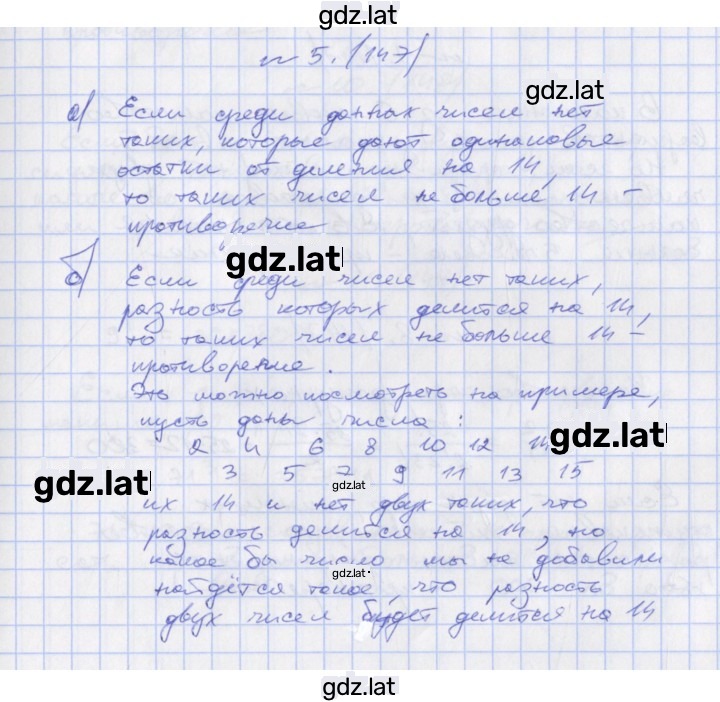 gdz.lat
n 5. (147)
gdz.lat
а) Если среди данных чисел нет
таких, которые дают одинаковые
остатки от деления на 14,
то таких чисел не больше 14 –
противоречие
gdz.lat
б) Если среди чисел нет таких,
разность которых делится на 14,
то таких чисел не больше 14 –
противоречие.
Это можно посмотреть на примере,
пусть даны числа :
2 4 6 8 10 12 14
gdz.lat
3 5 7 9 11 13 15
gdz.lat
gdz.lat
их 14 и нет двух таких, что
разность делится на 14, но
какое бы число мы не добавили
gdz.lat
найдётся такое, что разность
двух чисел будет делится на 14
gdz.lat